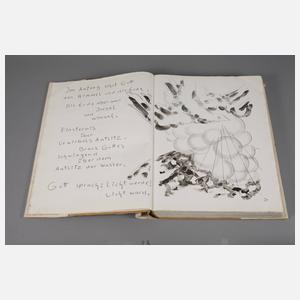 Im Anfang schuf Gott
den Himmel und die Erde.
Die Erde aber war
Irrsal
und
Wirrsal.
Finsternis
über
Urwirbels Antlitz.
Braus Gottes
schwingend
über dem
Antlitz der Wasser.
Gott sprach: Licht werde!
Licht ward.